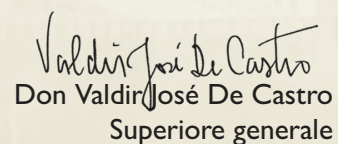 Valdir José De Castro
Don Valdir José De Castro
Superiore generale